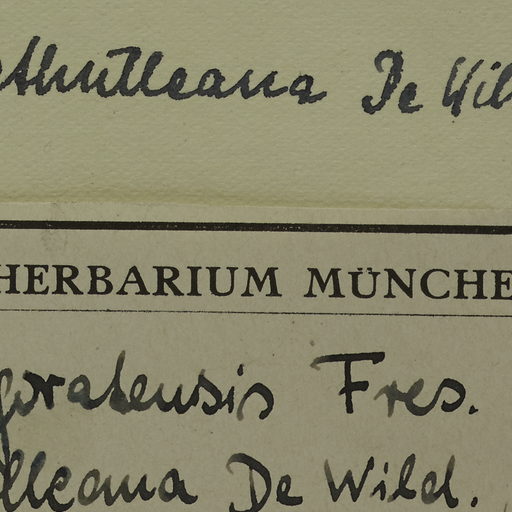 thulleana De Wil
HERBARIUM MÜNCHE
goratensis Fres.
lleana De Wild.